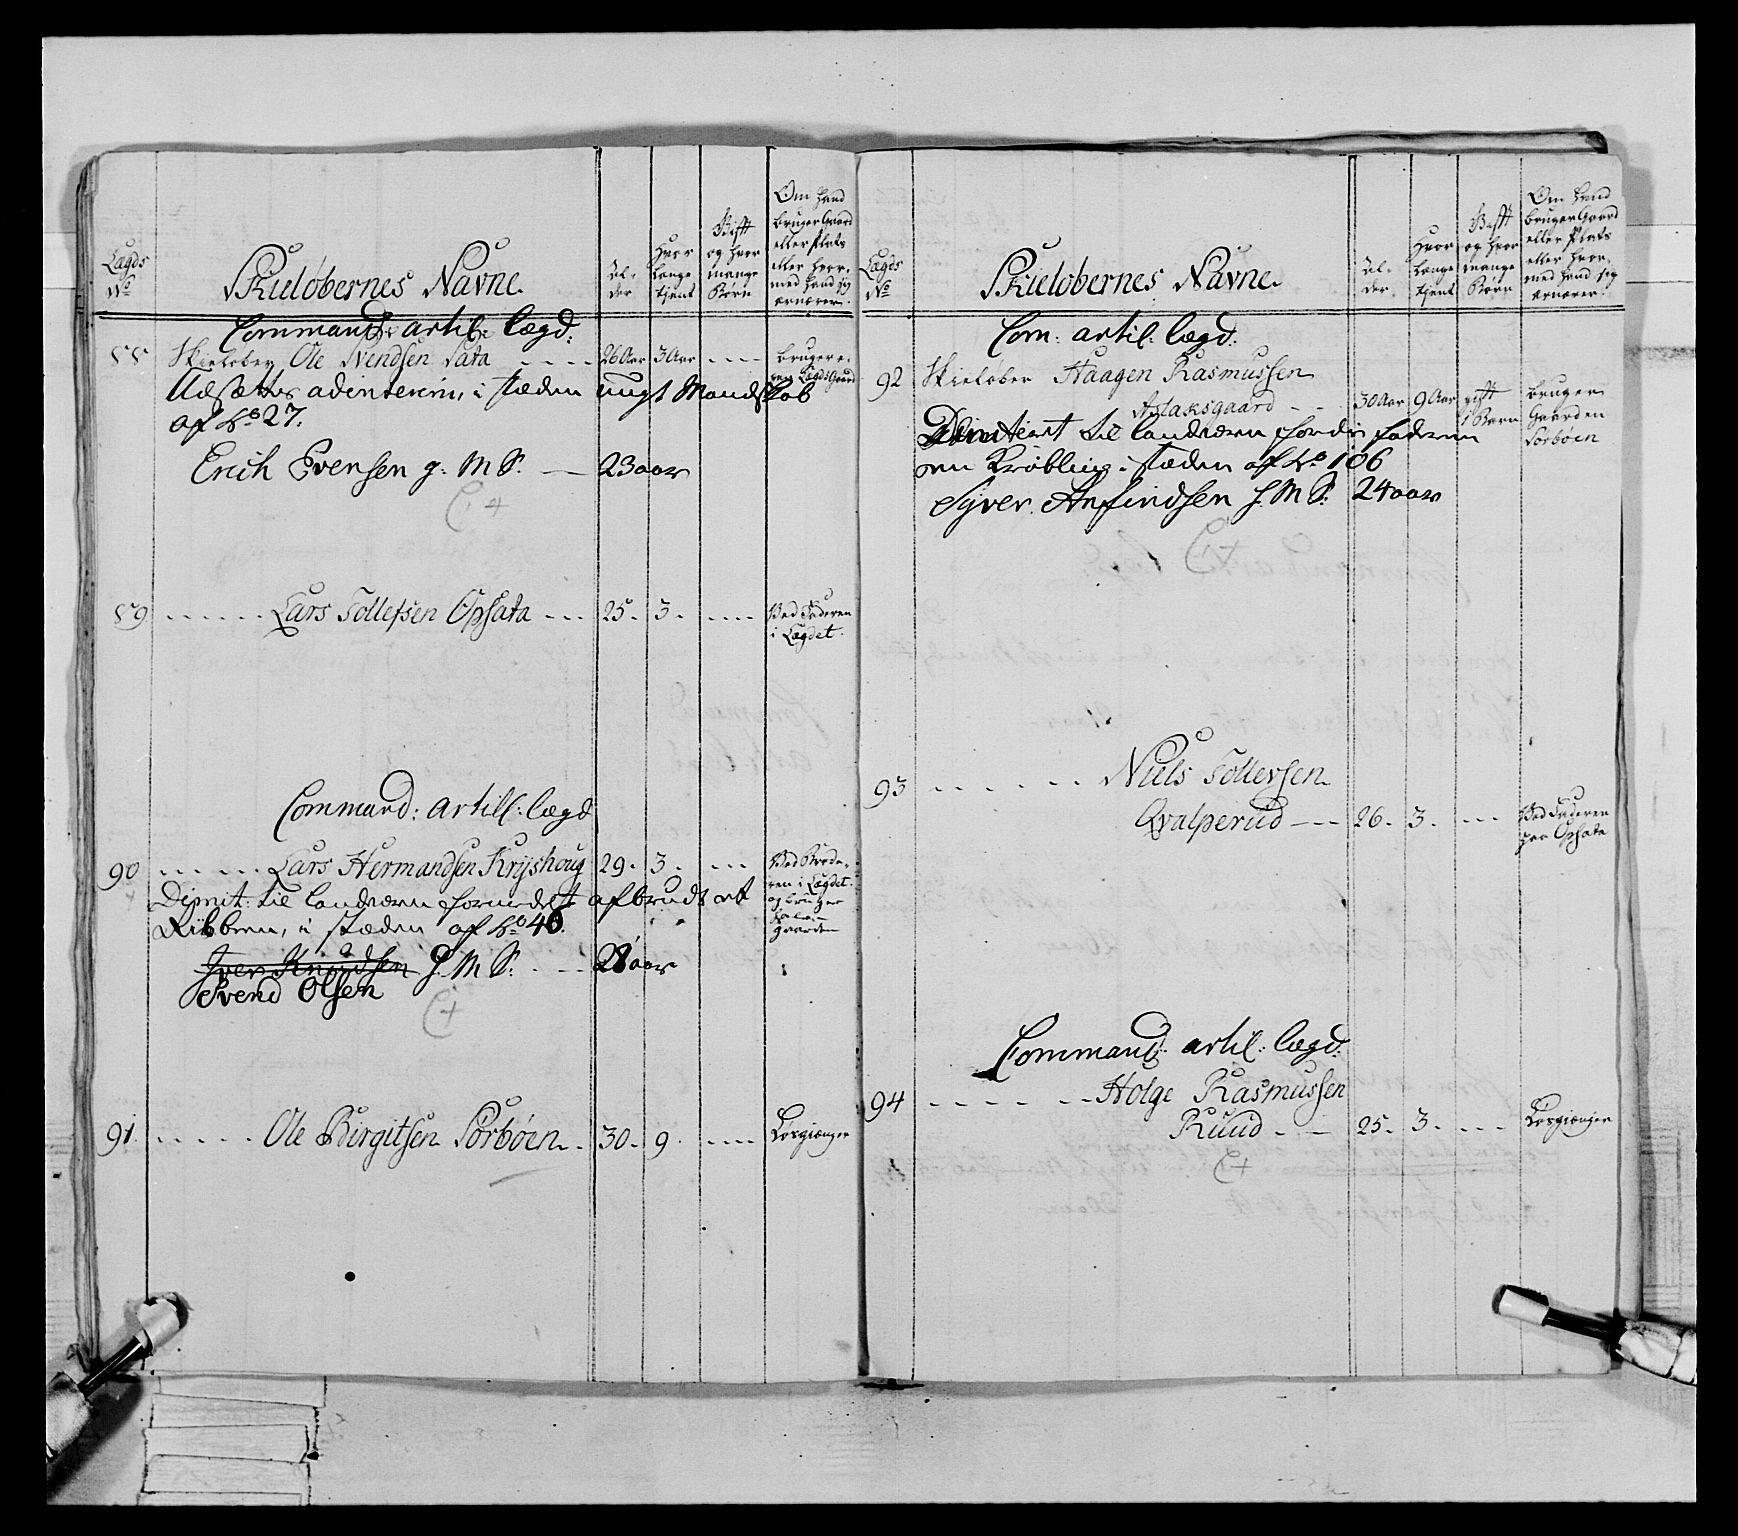 Lægds No
Skieløbernes Navne
Al-
der
Hvor
længe
tient
Gift
og hvor
mange
Børn
Om hand
bruger Gaard
eller Plats
eller hvor-
med hand sig
ernærer
Command: artil: lægd:
88 Skieløber Ole Svendsen Sata - - - - 26 Aar 3 Aar - - - - bruger e-
ren Lægds Gaard
i stæden ungt Mandskab
af No 27.
Erich Svensen g. M S. — 23 aar
C +
89 - - - - - - Lars Tollefsen Opsata - - - 25. 3. - - - - Ved Faderen
i Lægdet.
Command: artill: lægd
90 - - - - - Lars Hermandsen Krijshoug 29. 3. - - - Ved Brode-
ren i Lægdet.
og bruger
halve
gaarden
Dimit: til landværn formedelst afbrudt et
Ribben, i stæden af No 40.
Iver Knudsen S. M S. - — 28 aar
Svend Olsen
C +
91. - - - - - Ole Birgitsen Sørbøen. 30. 9. - - - - Løsgiænger
Lægds
No
Skieløbernes Navne
Al-
der
Hvor
længe
tient
Gift
og hvor
mange
Børn
Om hand
bruger Gaard
eller Plats
eller hvor-
med hand sig
ernærer
Com: artil: lægd:
92 Skieløber Haagen Rasmussen
Aslaksgaard - - 30 Aar 9 Aar gift
1 Barn
bruger
Gaarden
Sørbøen
Dimitteret til landværn fordi faderen
en Krøbling i stæden af No 106
Syver Anfindsen S. M S. 24 aar
93 - - - - - - Niels Tollevsen
Qvalperud - - - 26. 3. - - - Ved Faderen
paa Opsata
Command: artil: lægd:
94 - - - - - - Holge Rasmussen
Ruud - - - 25. 3. - - - Løsgiænger
C +